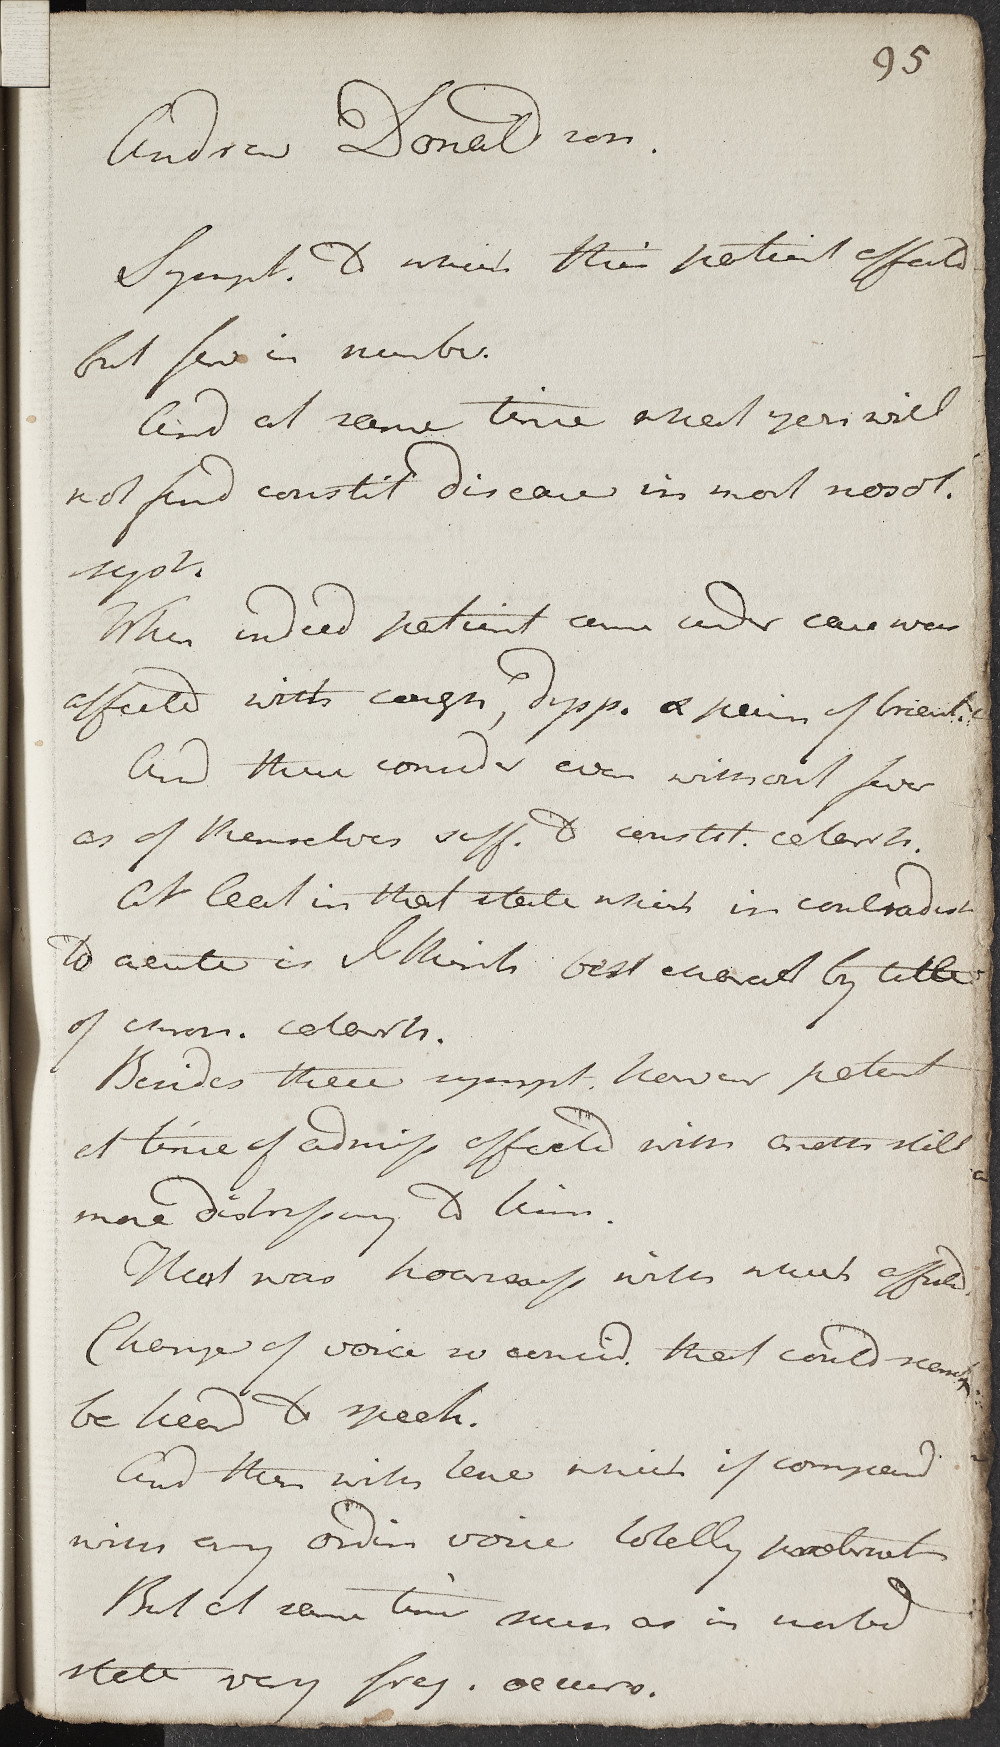 95
Andrew Donaldson.
Sympt. to which this patient affected
but few in number.
And at same time what yeri will
not find constit disease in most nosol.
syst.
When indeed patient came under care was
affected with cough, dysp. & pain of breast.
And these consider even without fever
as of themselves suff. to constit. catarrh.
At least in that state which in contradist
to acute is I think best charact by title
of chron. catarrh.
Besides these sympt. however patient
at time of admiss affected with anoth still
more distressing to him.
That was hoarseness with which affected.
Change of voice so consid. that could scarcely
be heard to speak.
And then with tone which if compared
with any ordin voice totally
But at same time such as in morbid
state very freq. occurs.